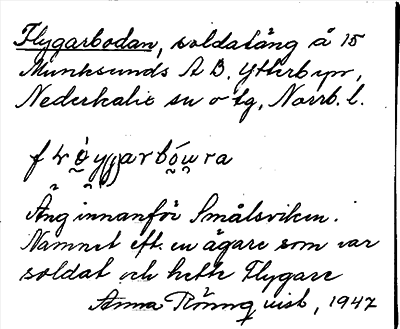 Flygarbodan, soldatäng å 15
Munksunds A B. Ytterbyn,
Nederkalix sn o tg, Norrb. l.
Äng innanför Smålsviken.
Namnet eft. en ägare som var
soldat och hette Flygare
Anna Rönnqvist, 1947